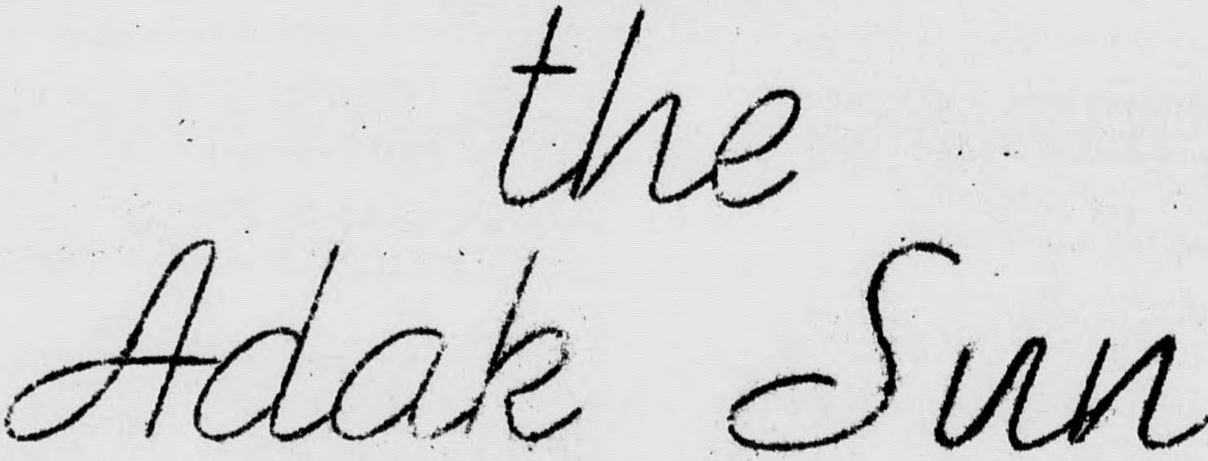 the
Adak Sun